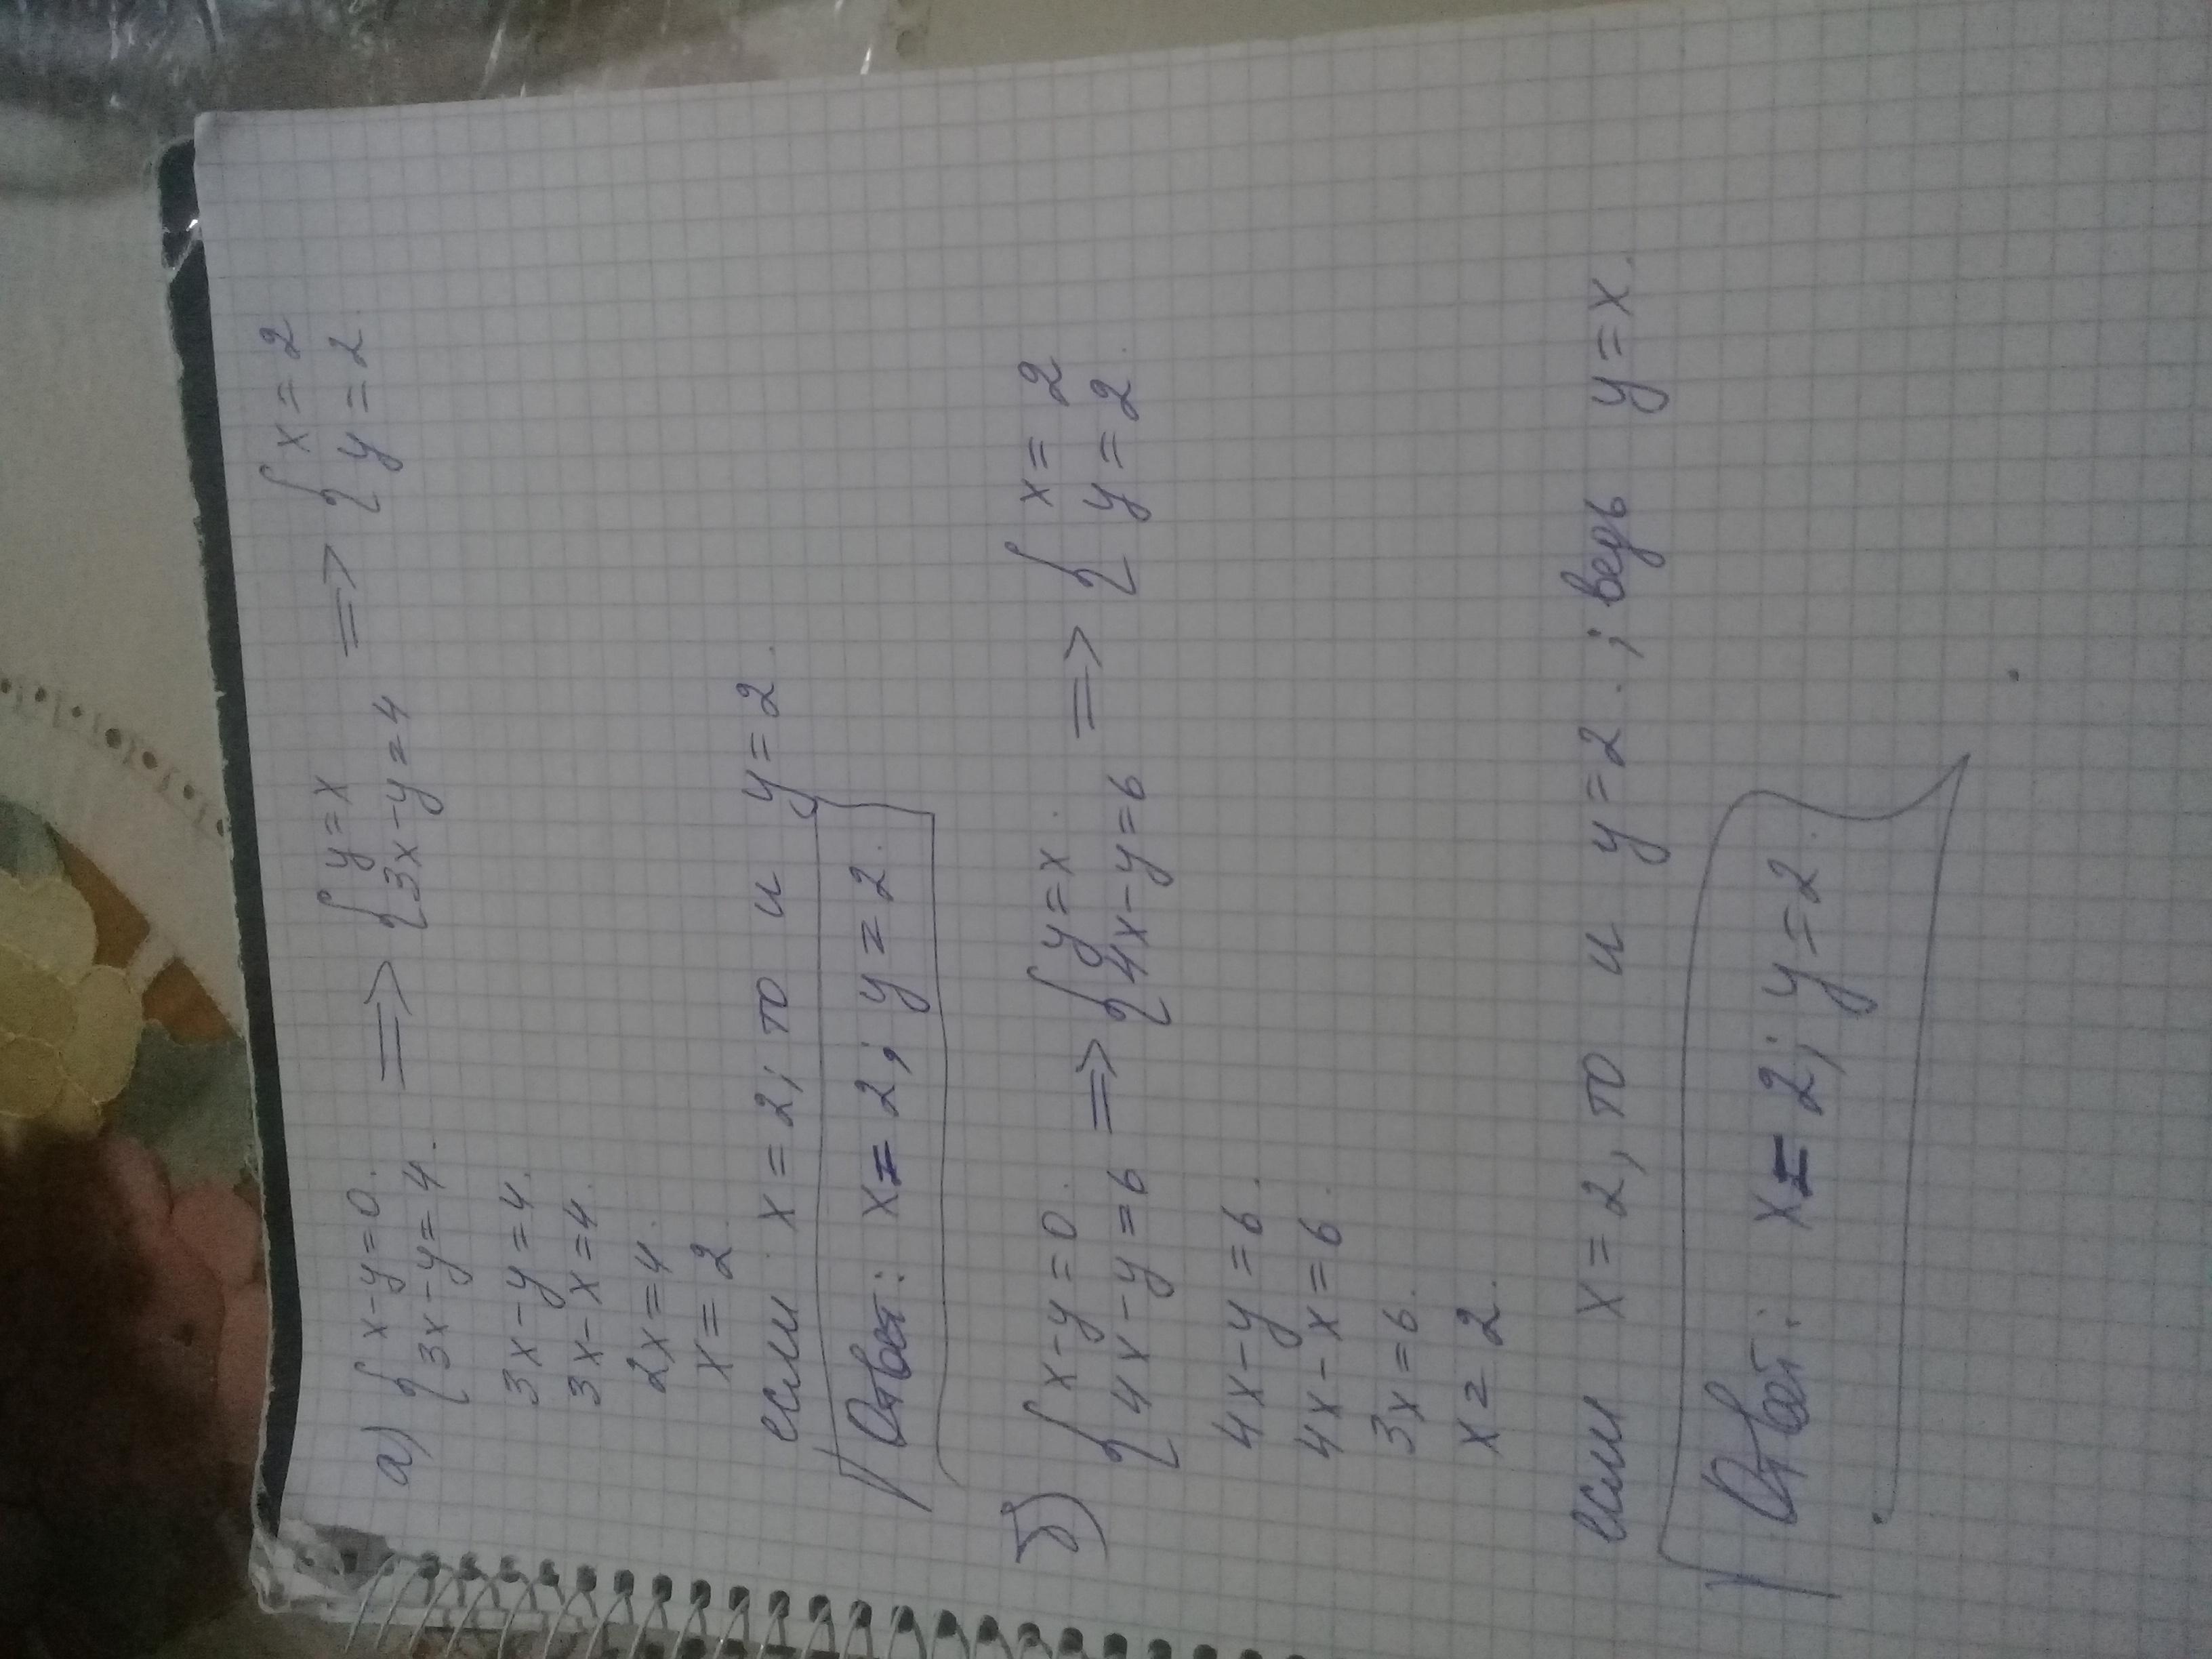 а) { x-y=0. => { y=x => { x=2
3x-y=4. 3x-y=4 y=2.
3x-y=4.
3x-x=4.
2x=4.
x=2
если x=2, то и y=2.
Ответ: x=2; y=2.
б) { x-y=0. => { y=x. => { x=2
4x-y=6 4x-y=6 y=2.
4x-y=6.
4x-x=6.
3x=6.
x=2.
если x=2, то и y=2.; ведь y=x.
Ответ: x=2; y=2.